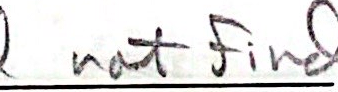 not Find